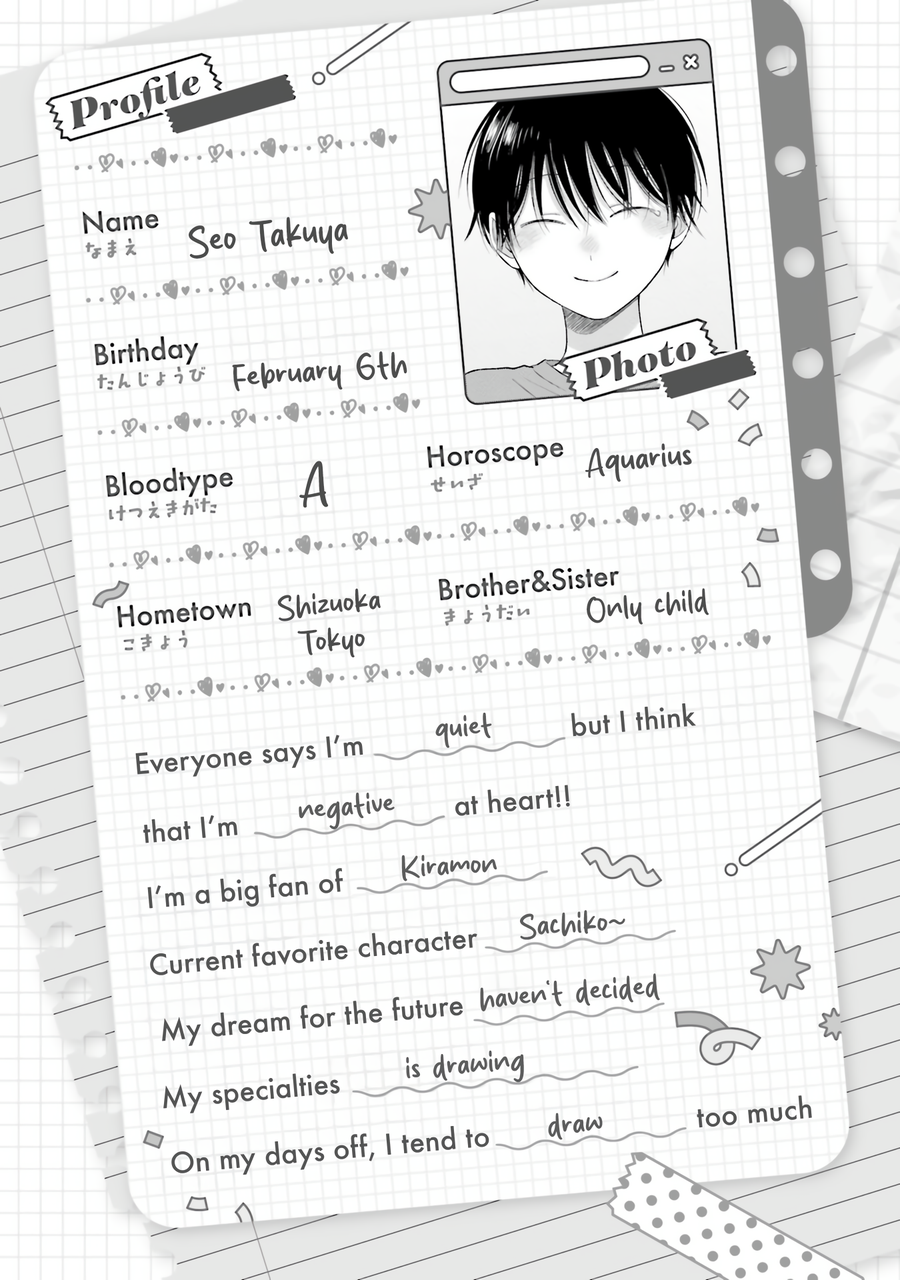 Profile
Name
なまえ
Seo Takuya
Birthday
たんじょうび
February 6th
Photo
Bloodtype
けつえきがた
A
Horoscope
せいざ
Aquarius
Hometown
こきょう
Shizuoka
Tokyo
Brother&Sister
きょうだい
Only child
Everyone says I'm quiet but I think
that I'm negative at heart!!
I'm a big fan of Kiramon
Current favorite character Sachiko~
My dream for the future haven't decided
My specialties is drawing
On my days off, I tend to draw too much